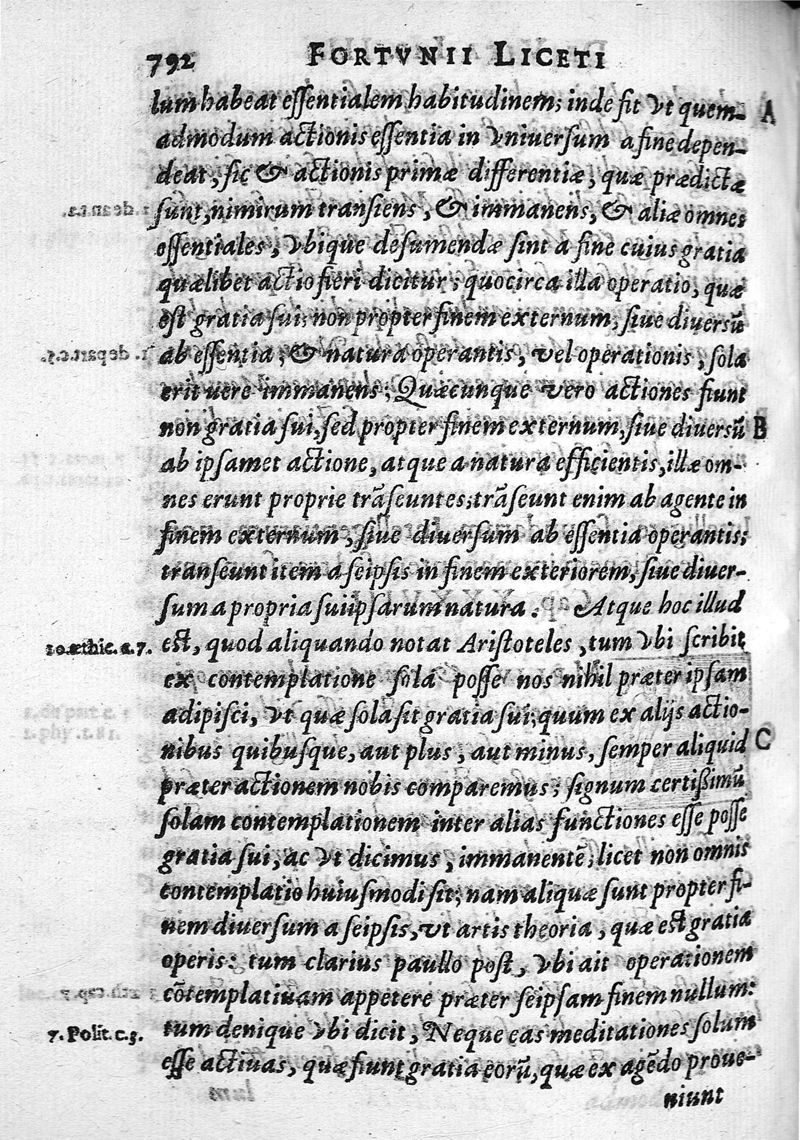 792 FORTVNII LICETI
lum habeat eſſentialem habitudinem; inde fit vt quem- A
admodum actionis eſſentia in vniuerſum a fine depen-
deat, ſic & actionis primæ differentiæ, quæ prædictæ
ſunt, nimirum tranſiens, & immanens, & aliæ omnes
eſſentiales, vbique deſumendæ ſint a fine cuius gratia
quælibet actio fieri dicitur; quocirca illa operatio, quæ
eſt gratia ſui, non propter finem externum, ſiue diuersũ
ab eſſentia, & natura operantis, vel operationis, ſola
erit uere immanens; Quæcunque vero actiones fiunt
non gratia ſui, ſed propter finem externum, ſiue diuersũ B
ab ipſamet actione, atque a natura efficientis, illæ om-
nes erunt proprie trãſeuntes; trãſeunt enim ab agente in
finem externum, ſiue diuerſum ab eſſentia operantis;
tranſeunt item a ſeipſis in finem exteriorem, ſiue diuer-
ſum a propria ſuiipſarum natura. Atque hoc illud
10. æthic. c. 7. eſt, quod aliquando notat Ariſtoteles, tum vbi ſcribit
ex contemplatione ſola poſſe nos nihil præter ipſam
adipiſci, vt quæ ſola ſit gratia ſui; quum ex alijs actio-
nibus quibuſque, aut plus, aut minus, ſemper aliquid C
præter actionem nobis comparemus; ſignum certiſſimũ
ſolam contemplationem inter alias functiones eſſe poſſe
gratia ſui, ac vt dicimus, immanentẽ; licet non omnis
contemplatio huiuſmodi ſit; nam aliquæ ſunt propter fi-
nem diuerſum a ſeipſis, vt artis theoria, quæ eſt gratia
operis: tum clarius paullo poſt, vbi ait operationem
cõtemplatiuam appetere præter ſeipſam finem nullum:
7. Polit. c. 3. tum denique vbi dicit, Neque eas meditationes ſolum
eſſe actiuas, quæ fiunt gratia eorũ, quæ ex agẽdo proue-
niunt